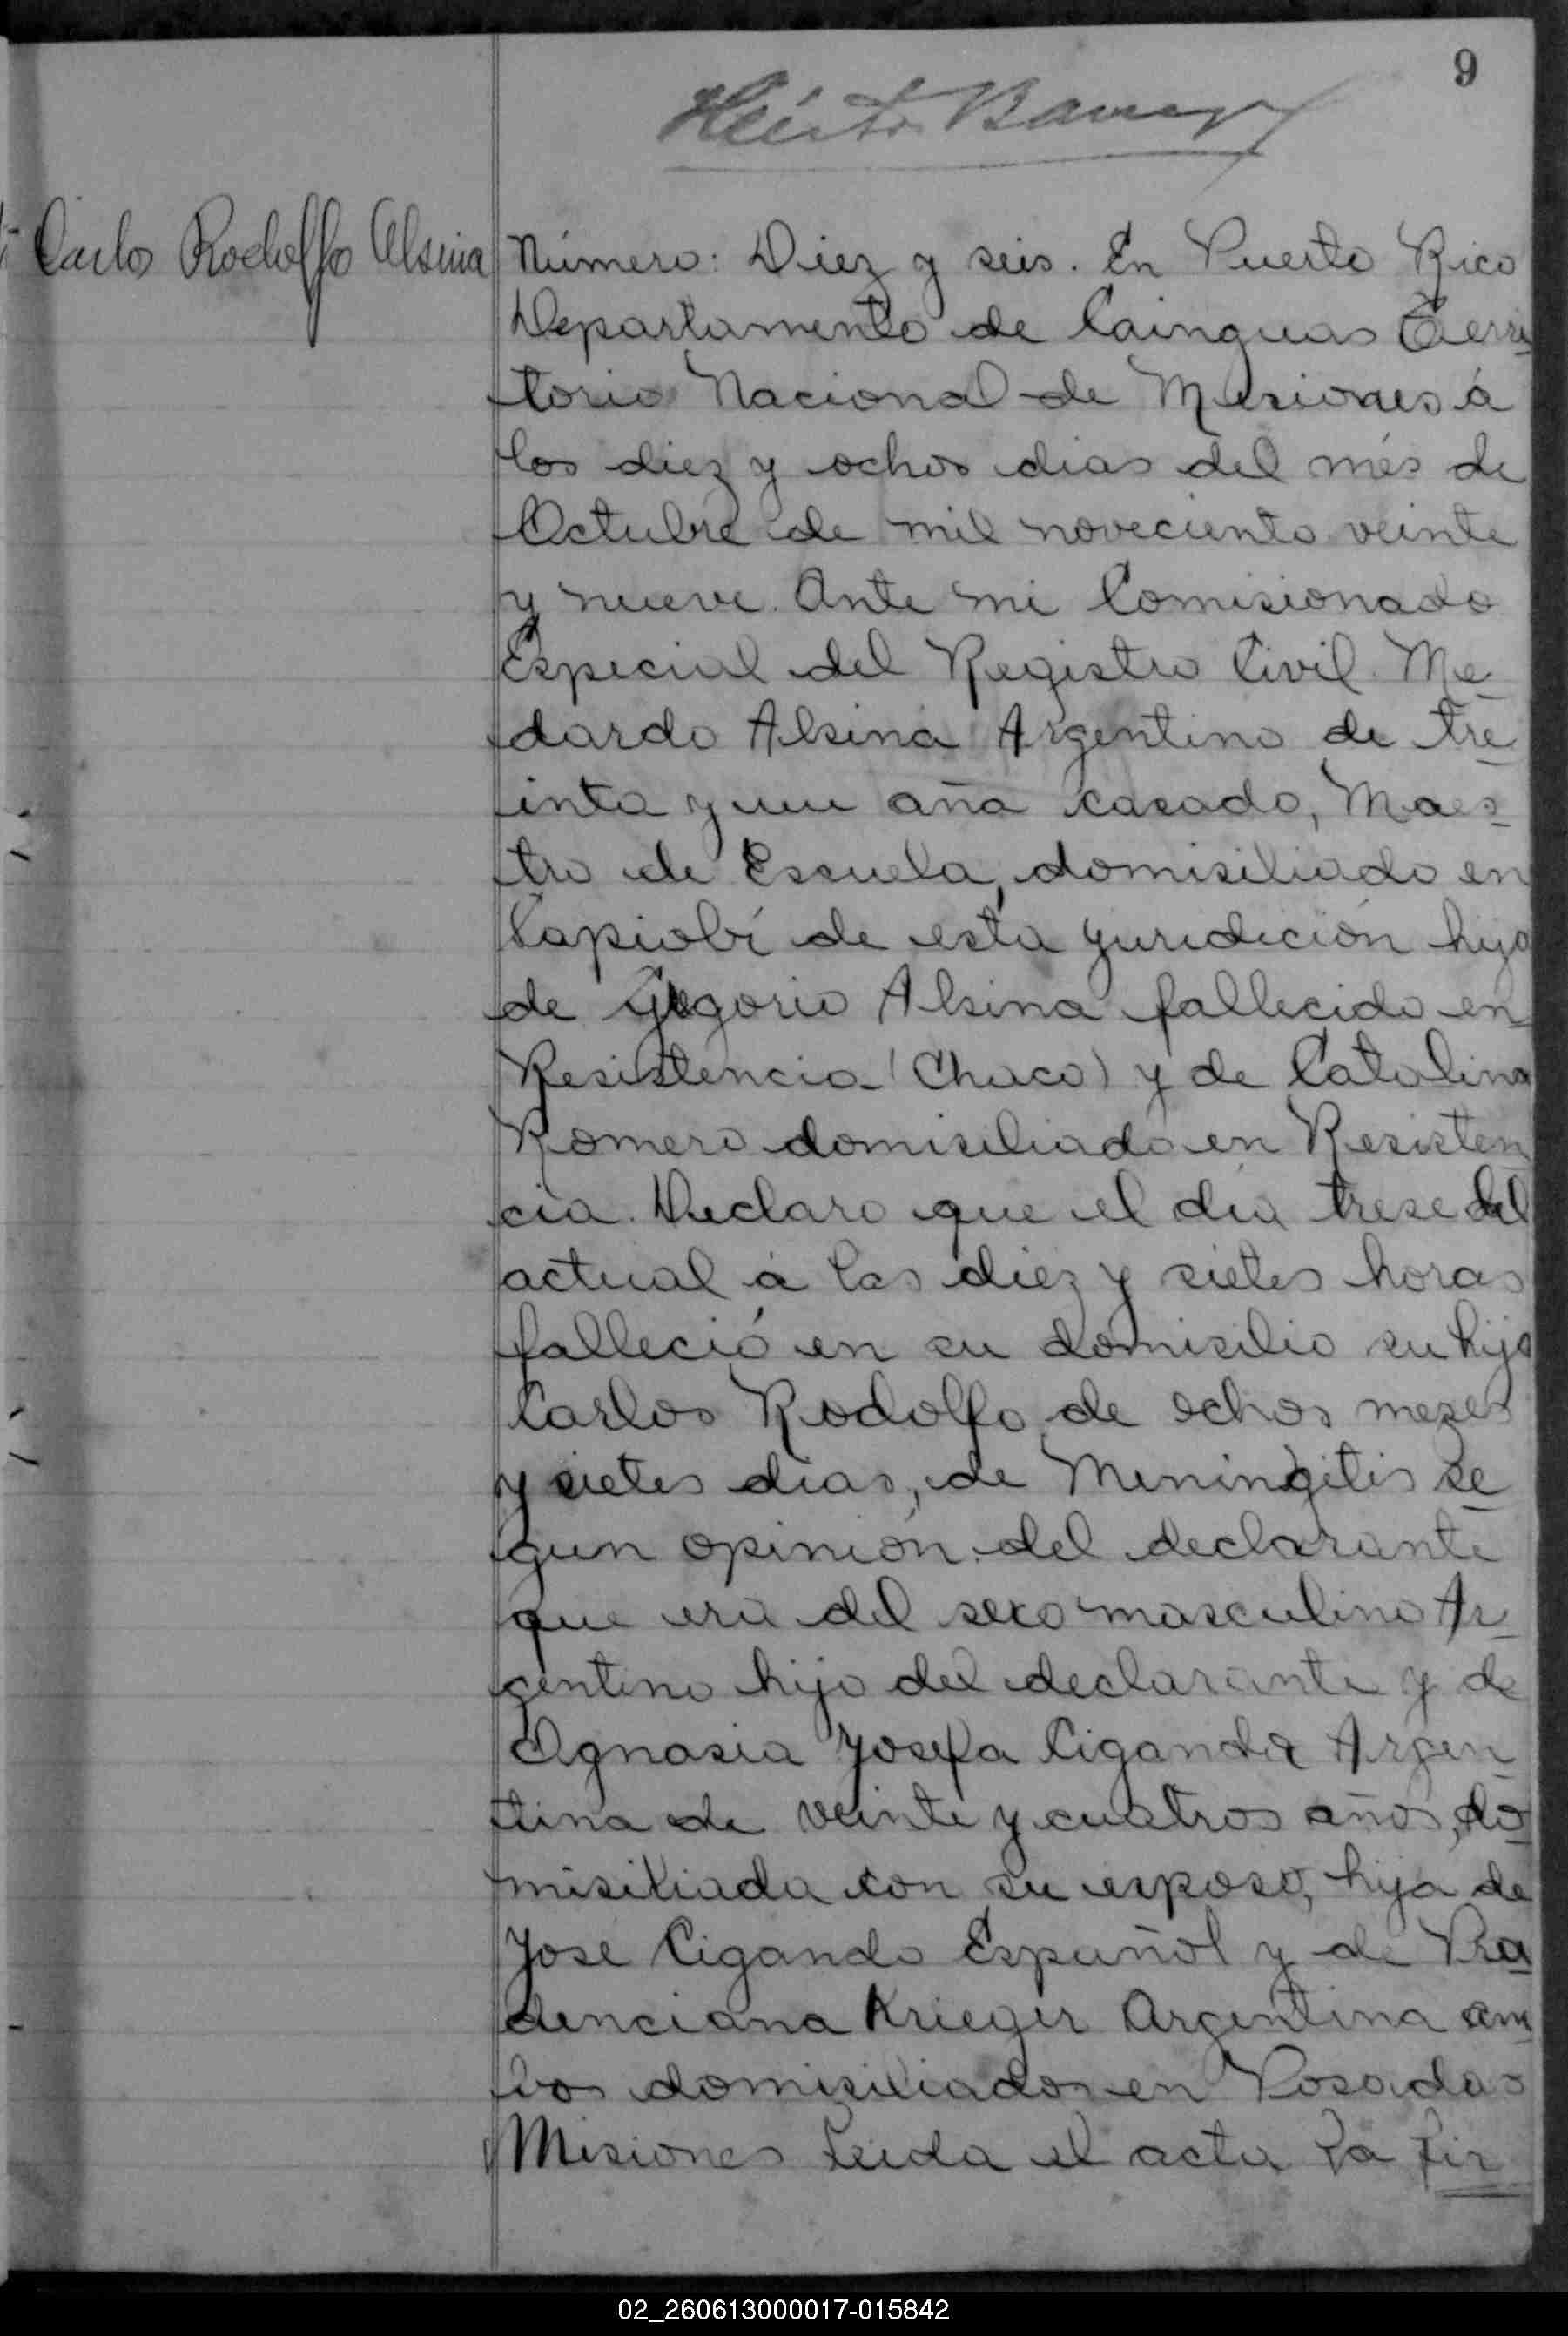 9
Carlos Rodolfo Alsina
Número: Diez y seis. En Puerto Rico
Departamento de Cainguas Terri-
torio Nacional de Misiones á
los diez y ochos dias del més de
Octubre de mil noveciento veinte
y nueve. Ante mi Comisionado
Especial del Registro Civil Me-
dardo Alsina Argentino de tre-
inta y un aña casado, Maes-
tro de Escuela, domisiliado en
Capiobí de esta yuridición hijo
de Gregorio Alsina fallecido en
Resistencia (Chaco) y de Catalina
Romero domisiliada en Resisten
cia. Declaro que el día trese del
actual á las diez y sietes horas
falleció en su domisilio su hijo
Carlos Rodolfo de ochos mezes
y sietes dias, de Meningitis se-
gun opinión del declarante
que era del sexo masculino Ar-
gentino hijo del declarante y de
Ignasia Josefa Ciganda Argen-
tina de veinte y cuatros años, do-
misiliada con su esposo, hija de
José Cigando Español y de Pra-
denciana Krieger Argentina am-
bos domisiliados en Posadas
Misiones Leida el acta la fir-
02_260613000017-015842